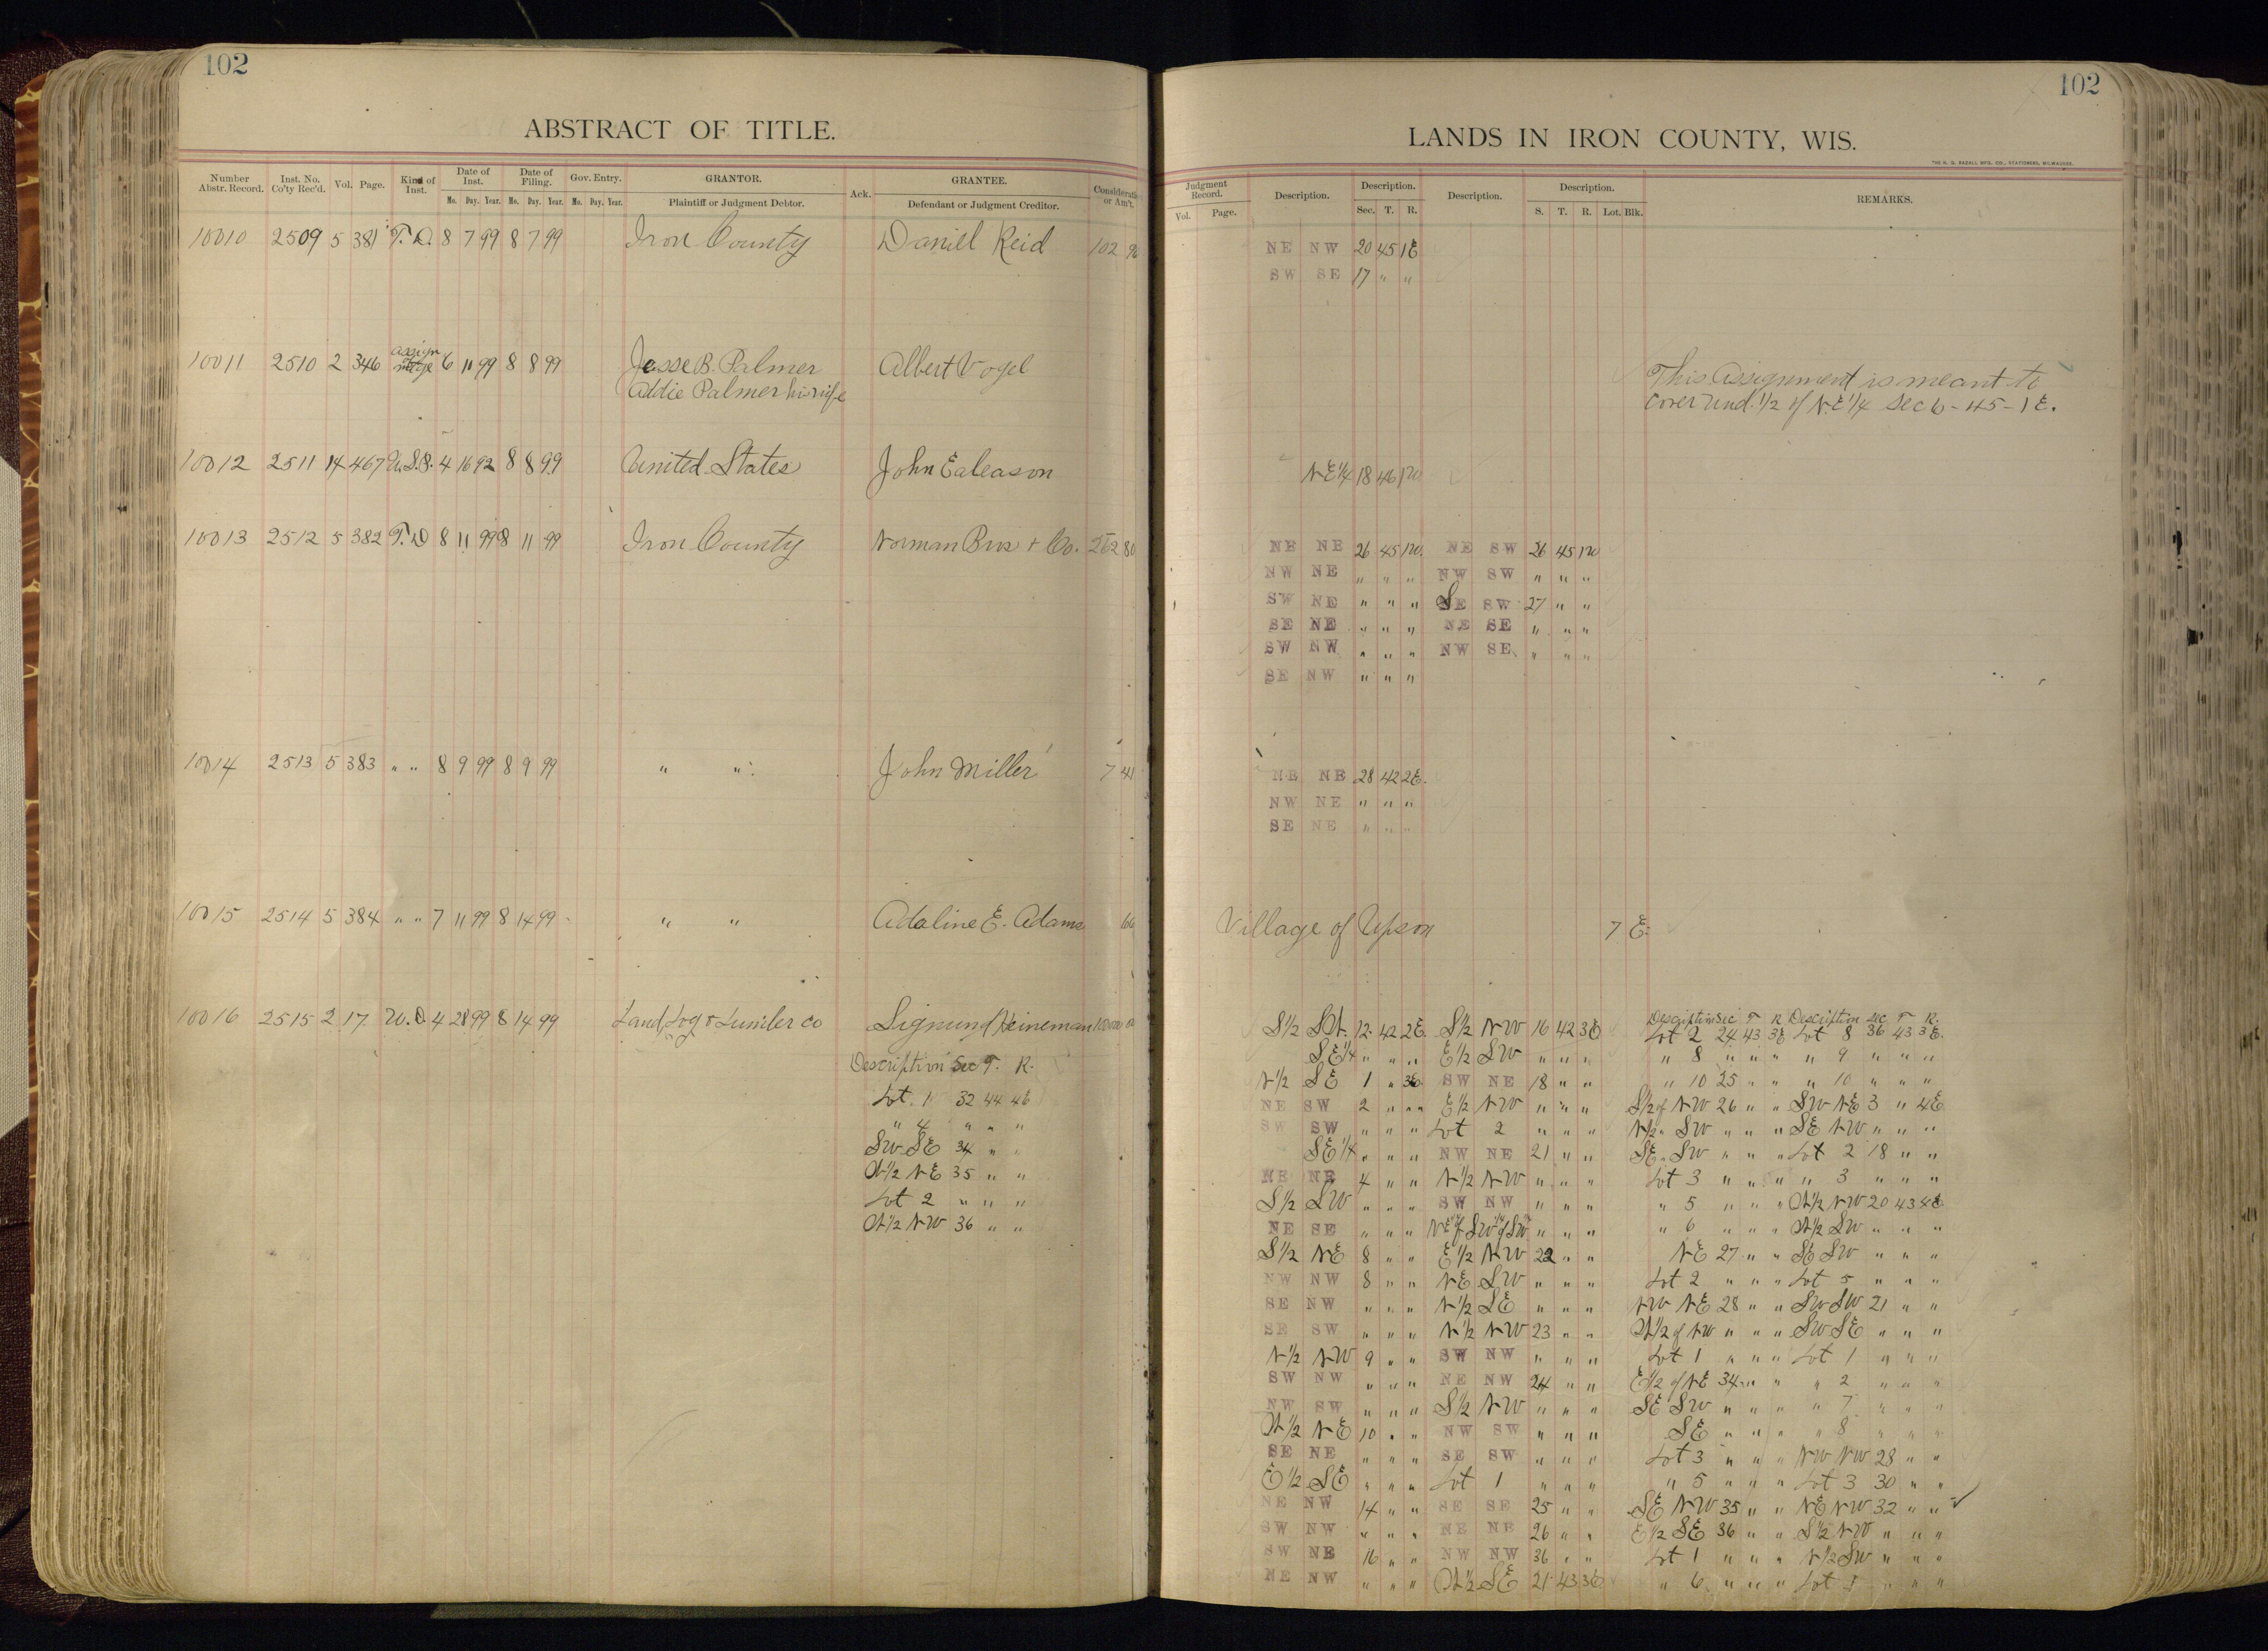 102
ABSTRACT OF TITLE.
Number Abstr. Record. Inst. No. Co'ty Rec'd. Vol. Page. Kind of Inst. Date of Inst. Mo. Day. Year. Date of Filing. Mo. Day. Year. Gov. Entry. Mo. Day. Year. GRANTOR. Plaintiff or Judgment Debtor. Ack. GRANTEE. Defendant or Judgment Creditor. Consideration or Am't.
10010 2509 5 381 T. D. 8 7 99 8 7 99 Iron County Daniel Reid 102 96
10011 2510 2 346 assign mtge 6 11 99 8 8 99 Jesse B. Palmer Albert Vogel
Addie Palmer his wife
10012 2511 14 467 4 16 92 8 8 99 United States John Ealeason
10013 2512 5 382 T. D 8 11 99 8 11 99 Iron County Norman Bros + Co. 262 80
10014 2513 5 383 " " 8 9 99 8 9 99 " " John Miller 7 41
10015 2514 5 384 " " 7 11 99 8 14 99 " " Adaline E. Adams 66
10016 2515 2 17 W. D 4 28 99 8 14 99 Land, Log & Lumber Co Sigmund Heineman
Description Sec T. R.
Lot 1 32 44 4E
" 4 " " "
SW SE 34 " "
W1/2 NE 35 " "
Lot 2 " " "
W1/2 NW 36 " "
102
LANDS IN IRON COUNTY, WIS.
THE H. G. RAZALL MFG. CO., STATIONERS, MILWAUKEE.
Judgment Record. Vol. Page. Description. Description. Sec. T. R. Description. Description. S. T. R. Lot. Blk. REMARKS.
NE NW 20 45 1E
SW SE 17 " "
This Assignment is meant to
cover und. 1/2 of NE1/4 Sec 6-45-1E.
NE1/4 18 46 1W
NE NE 26 45 1W NE SW 26 45 1W
NW NE " " " NW SW " " "
SW NE " " " SE SW 27 " "
SE NE " " " NE SE " " "
SW NW " " " NW SE " " "
SE NW " " "
NE NE 28 42 2E
NW NE " " "
SE NE " " "
Village of Upson 7 E
Description Sec T R Description Sec T R.
S1/2 12 42 2E S1/2 NW 16 42 3E Lot 2 24 43 3E Lot 8 36 43 3E
SE1/4 " " " E1/2 SW " " " " 8 " " " " 9 " " "
N1/2 SE 1 " 3E SW NE 18 " " " 10 25 " " " 10 " " "
NE SW 2 " " E1/2 NW " " " S1/2 of NW 26 " " SW NE 3 " 4E
SW SW " " " Lot 2 " " " N1/2 " SW " " " SE NW " " "
SE1/4 " " " NW NE 21 " " SE " SW " " " Lot 2 18 " "
NE NE 4 " " N1/2 NW " " " Lot 3 " " " " 3 " " "
S1/2 SW " " " SW NW " " " " 5 " " " W1/2 NW 20 43 4E
NE SE " " " NE1/4 of SW1/4 of SW1/4 " " " " 6 " " " W1/2 SW " " "
S1/2 NE 8 " " E1/2 NW 22 " " NE 27 " " SE SW " " "
NW NW 8 " " NE SW " " " Lot 2 " " " Lot 5 " " "
SE NW " " " N1/2 SE " " " NW NE 28 " " SW SW 21 " "
SE SW " " " N1/2 NW 23 " " W1/2 of NW " " " SW SE " " "
N1/2 NW 9 " " SW NW " " " Lot 1 " " " Lot 1 " " "
SW NW " " " NE NW 24 " " E1/2 of NE 34 " " " 2 " " "
NW SW " " " S1/2 NW " " " SE SW " " " " 7 " " "
W1/2 NE 10 " " NW SW " " " SE " " " " 8 " " "
SE NE " " " SE SW " " " Lot 3 " " " NW NW 28 " "
E1/2 SE " " " Lot 1 " " " " 5 " " " Lot 3 30 " "
NE NW 14 " " SE SE 25 " " SE NW 35 " " NE NW 32 " "
SW NW " " " NE NE 26 " " E1/2 SE 36 " " S1/2 NW " " "
SW NE 16 " " NW NW 36 " " Lot 1 " " " N1/2 SW " " "
NE NW " " " W1/2 SE 21 43 3E " 6 " " " Lot 1 " " "